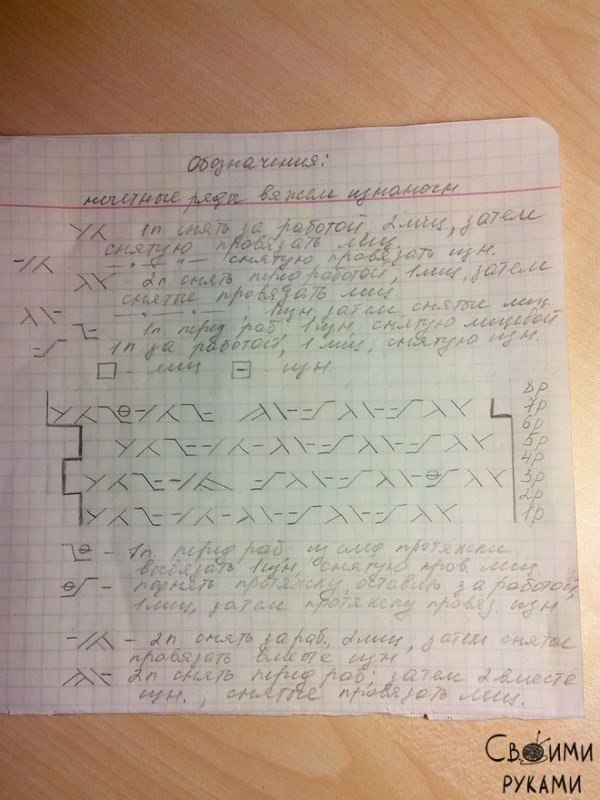 Обозначения:
нечетные ряды вяжем изнаночн
1п. снять за работой, 2лиц, затем
снятую провязать лиц.
— " — " — снятую провязать изн.
2п снять перед работой, 1лиц, затем
снятые провязать лиц.
— " — " —, 1изн, затем снятые лиц.
1п. перед раб, 1изн, снятую лицевой
1п за работой, 1лиц, снятую изн.
- лиц - изн.
8р
7р
6р
5р
4р
3р
2р
1р.
- 1п. перед раб. из след протяжки
вывязать 1изн, снятую пров. лиц.
- поднять протяжку, оставить за работой,
1лиц, затем протяжку провяз. изн
- 2п. снять за раб., 2лиц, затем снятые
провязать вместе изн
2п снять перед раб, затем 2 вместе
изн., снятые провязать лиц.
Своими
руками